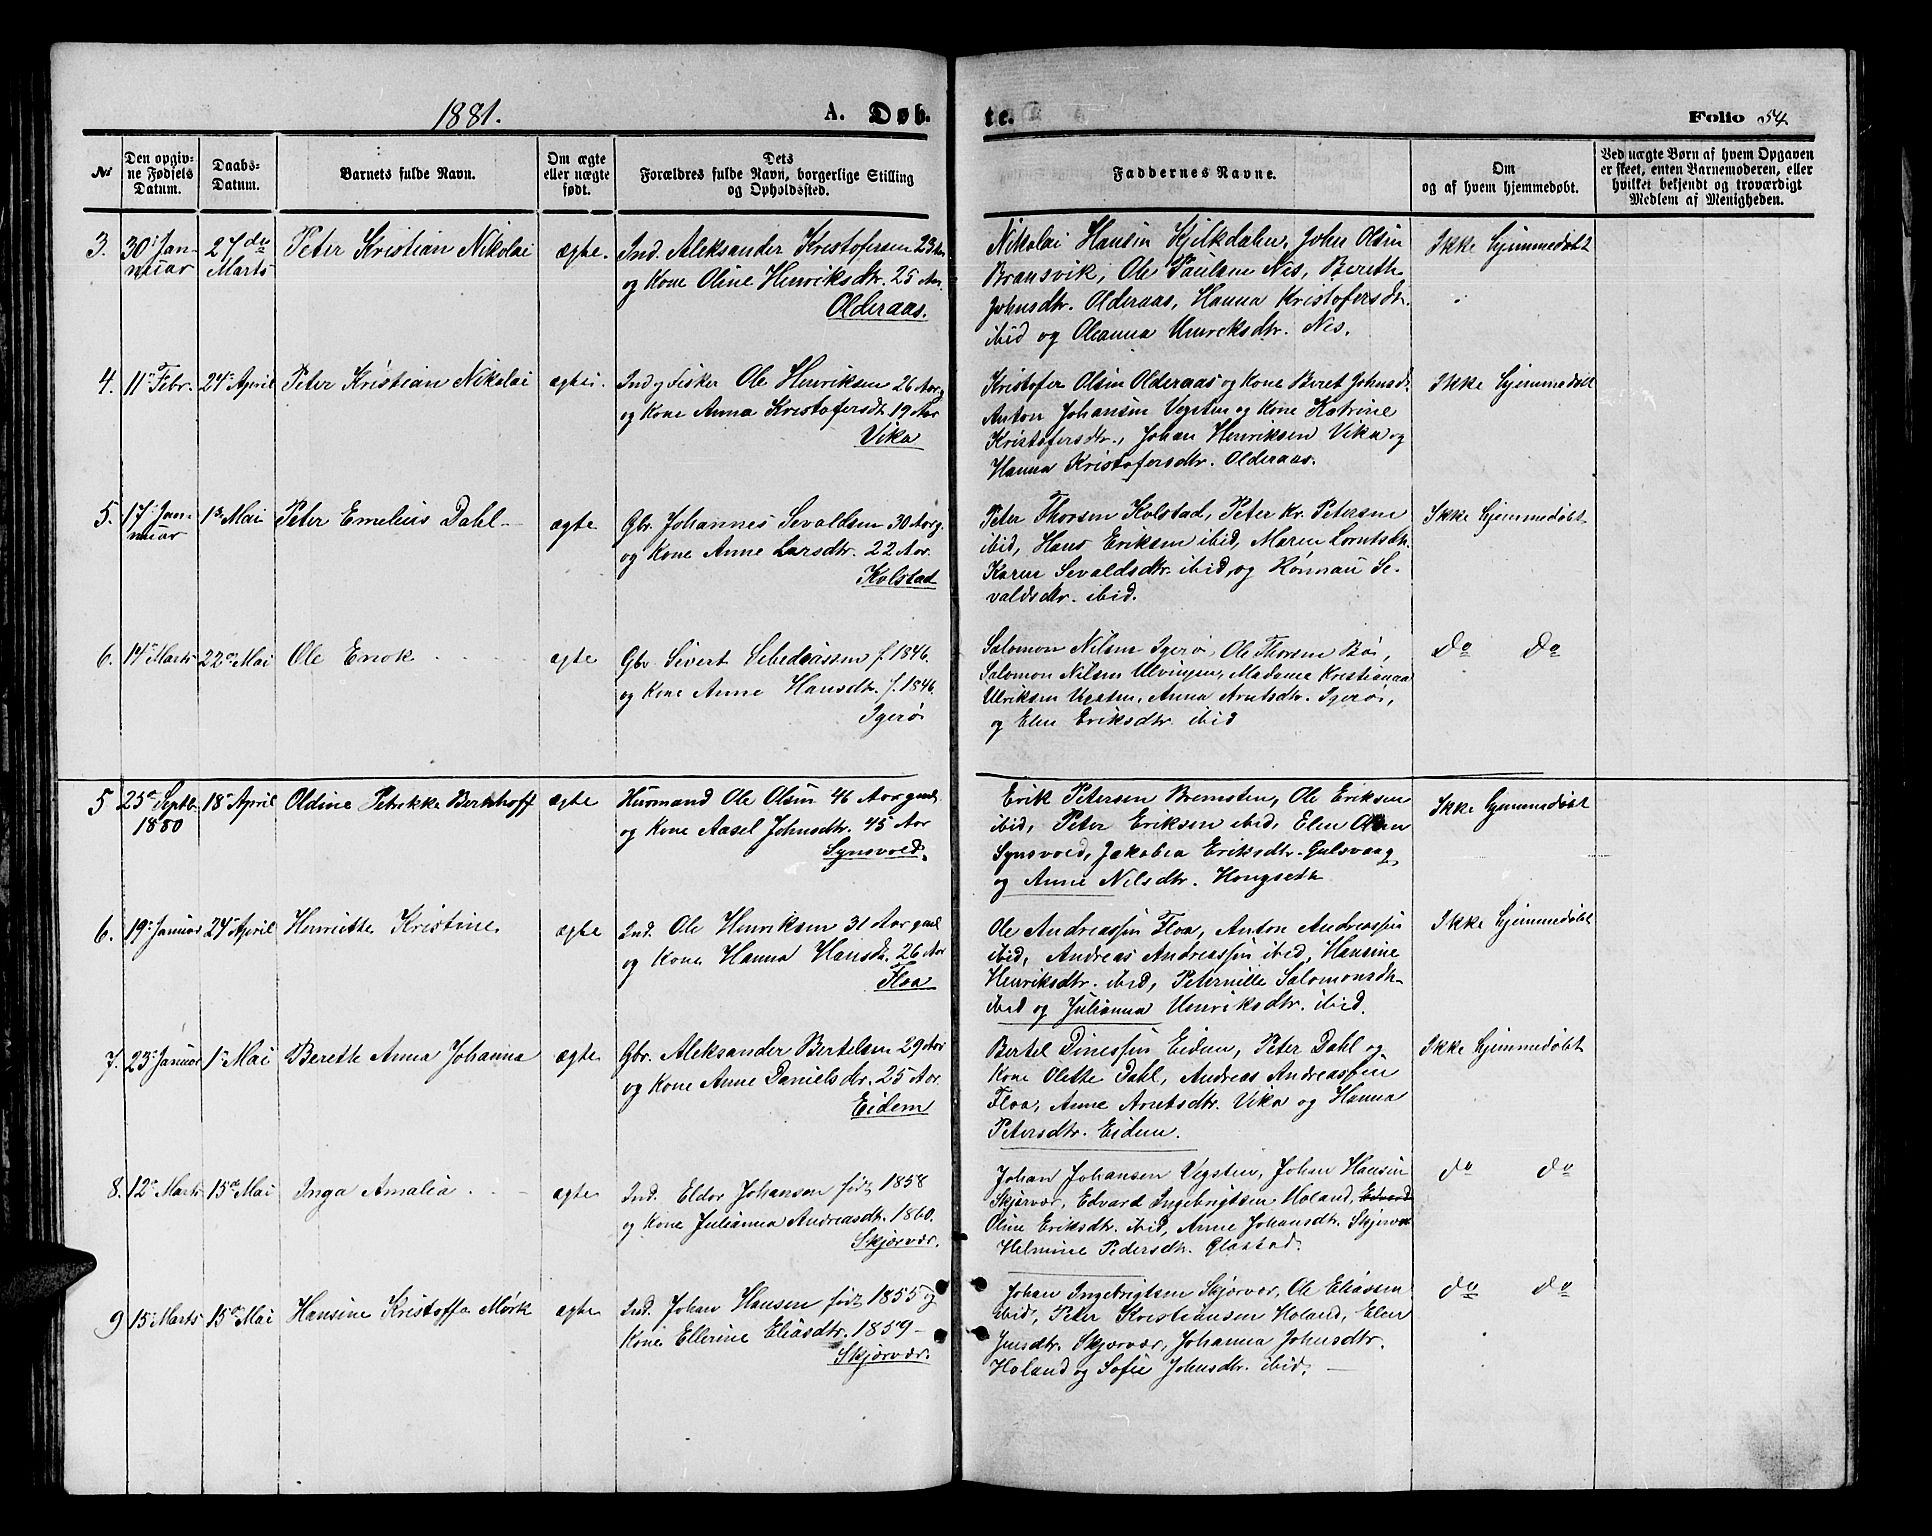 1881.
A. Døb.
te.
Folio 54
No
Den opgiv-
ne Fødsels
Datum.
Daabs-
Datum.
Barnets fulde Navn.
Om ægte
eller uægte
født.
Dets
Forældres fulde Navn, borgerlige Stilling
og Opholdssted.
Faddernes Navne.
Om
og af hvem hjemmedøbt.
Ved uægte Børn af hvem Opgaven
er skeet, enten Barnemoderen, eller
hvilket bekjendt og troværdigt
Medlem af Menigheden.
3.
30 Jan-
nuar
27de
Marts
Peter Kristian Nikolai
ægte.
Ind. Aleksander Kristofersen 23 Aar
og Kone Oline Henriksdtr. 25 Aar.
Olderaas.
Nikolai Hansen Kjilkdalen, John Olsen
Bransvik, Ole Paulsen Nes, Bereth
Johnsdtr. Olderaas, Hanna Kristofersdtr.
ibid og Oleanna Henreksdtr. Nes.
Ikke hjemmedøbt
4.
11 Febr.
24 April
Peter Kristian Nikolai
ægte.
Ind og Fisker Ole Henriksen 26 Aarg
og Kone Anna Kristofersdtr 19 Aar
Vika
Kristofer Olsen Olderaas og Kone Beret Johnsdtr
Anton Johansen Vegsten og Kone Katrine
Kristofersdtr., Johan Henriksen Vika og
Hanna Kristofersdtr. Olderaas.
Ikke hjemmedøbt
5.
17 Jan-
nuar
1 Mai
Peter Emelius Dahl
ægte
Gbr. Johannes Sevaldsen 30 Aarg.
og Kone Anne Larsdtr. 22 Aar.
Kolstad
Peter Thorsen Kolstad, Peter Kr. Petersen
ibid, Hans Eriksen ibid, Maren Lorntsdtr.
Karen Sevaldsdtr. ibid, og Rønnau Se-
valdsdtr. ibid.
Ikke hjemmedøbt
6.
14 Marts
22 Mai
Ole Enok
ægte
Gbr. Sivert Sebedeassen f. 1846.
og Kone Anne Hansdtr. f. 1846.
Igerøi
Salomon Nilsen Igerøi, Ole Thorsen Bøi,
Salomon Nilsen Ulvingen, Madame Kristianna
Ulriksen Vegsten, Anna Arntsdtr. Igerøi,
og Elen Eriksdtr. ibid
do do
5
25 Septb.
1880
18 April
Oldine Petrikke Berkhoff
ægte
Husmand Ole Olsen 46 Aar gml.
og Kone Aasel Johnsdtr. 45 Aar
Synsvold.
Erik Petersen Bremsten, Ole Eriksen
ibid, Peter Eriksen ibid, Elen Olsen
Synsvold, Jakobia Eriksdtr. Gulsvaag
og Anne Nilsdtr. Hongseth
Ikke hjemmedøbt
6.
19 Januar
24 April
Henriette Kristine.
ægte
Ind. Ole Henriksen 31 Aar gml
og Kone Hanna Hansdtr. 26 Aar
Floa
Ole Andreassen Floa, Anton Andreassen
ibid, Andreas Andreassen ibid, Hansine
Henriksdtr. ibid, Peternille Salomonsdtr.
ibid og Julianna Henriksdtr. ibid.
Ikke hjemmedøbt
7.
23 Januar
1 Mai
Bereth Anna Johanna
ægte
Gbr. Aleksander Bertelsen 29 Aar
og Kone Anne Danielsdtr. 25 Aar.
Eidem
Bertel Dinessen Eidem, Peter Dahl og
Kone Olette Dahl, Andreas Andreassen
Floa, Anne Arntsdtr. Vika og Hanna
Petersdtr. Eidem.
Ikke hjemmedøbt
8.
12 Marts
15 Mai
Inga Amalia
ægte
Ind. Eldor Johansen født 1858
og Kone Julianna Andreasdtr. 1860.
Skjærvær.
Johan Johansen Vegsten, Johan Hansen
Skjærvær, Edvard Ingebrigtsen Holand, Edvard
Oline Eriksdtr. ibid, Anne Johansdtr. Skjærvær
Helmine Pedersdtr. Glastad.
do do
9
15 Marts
15 Mai
Hansine Kristoffa Mørk
ægte
Ind. Johan Hansen født 1855 og
Kone Ellerine Eliasdtr. 1859 –
Skjærvær.
Johan Ingebrigtsen Skjærvær, Ole Eliassen
ibid, Peter Kristiansen Holand, Elen
Jensdtr. Skjærvær, Johanna Johnsdtr.
Holand og Sofie Johnsdtr. ibid.
do do